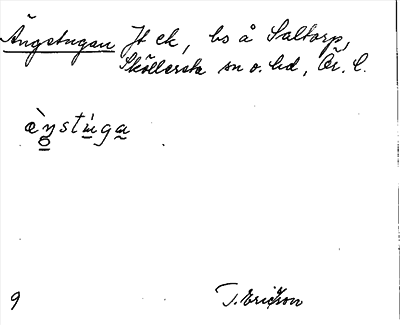 Ängstugan Jt ek, bs å Saltorp,
Sköllersta sn o. hd, Ör. l.
æ̀ŋstu̇ga
9
T. Ericson